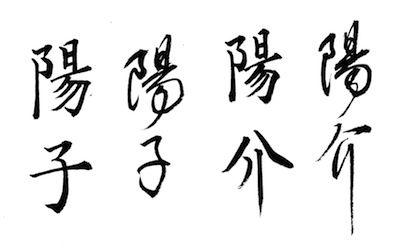 陽介
陽介
陽子
陽子